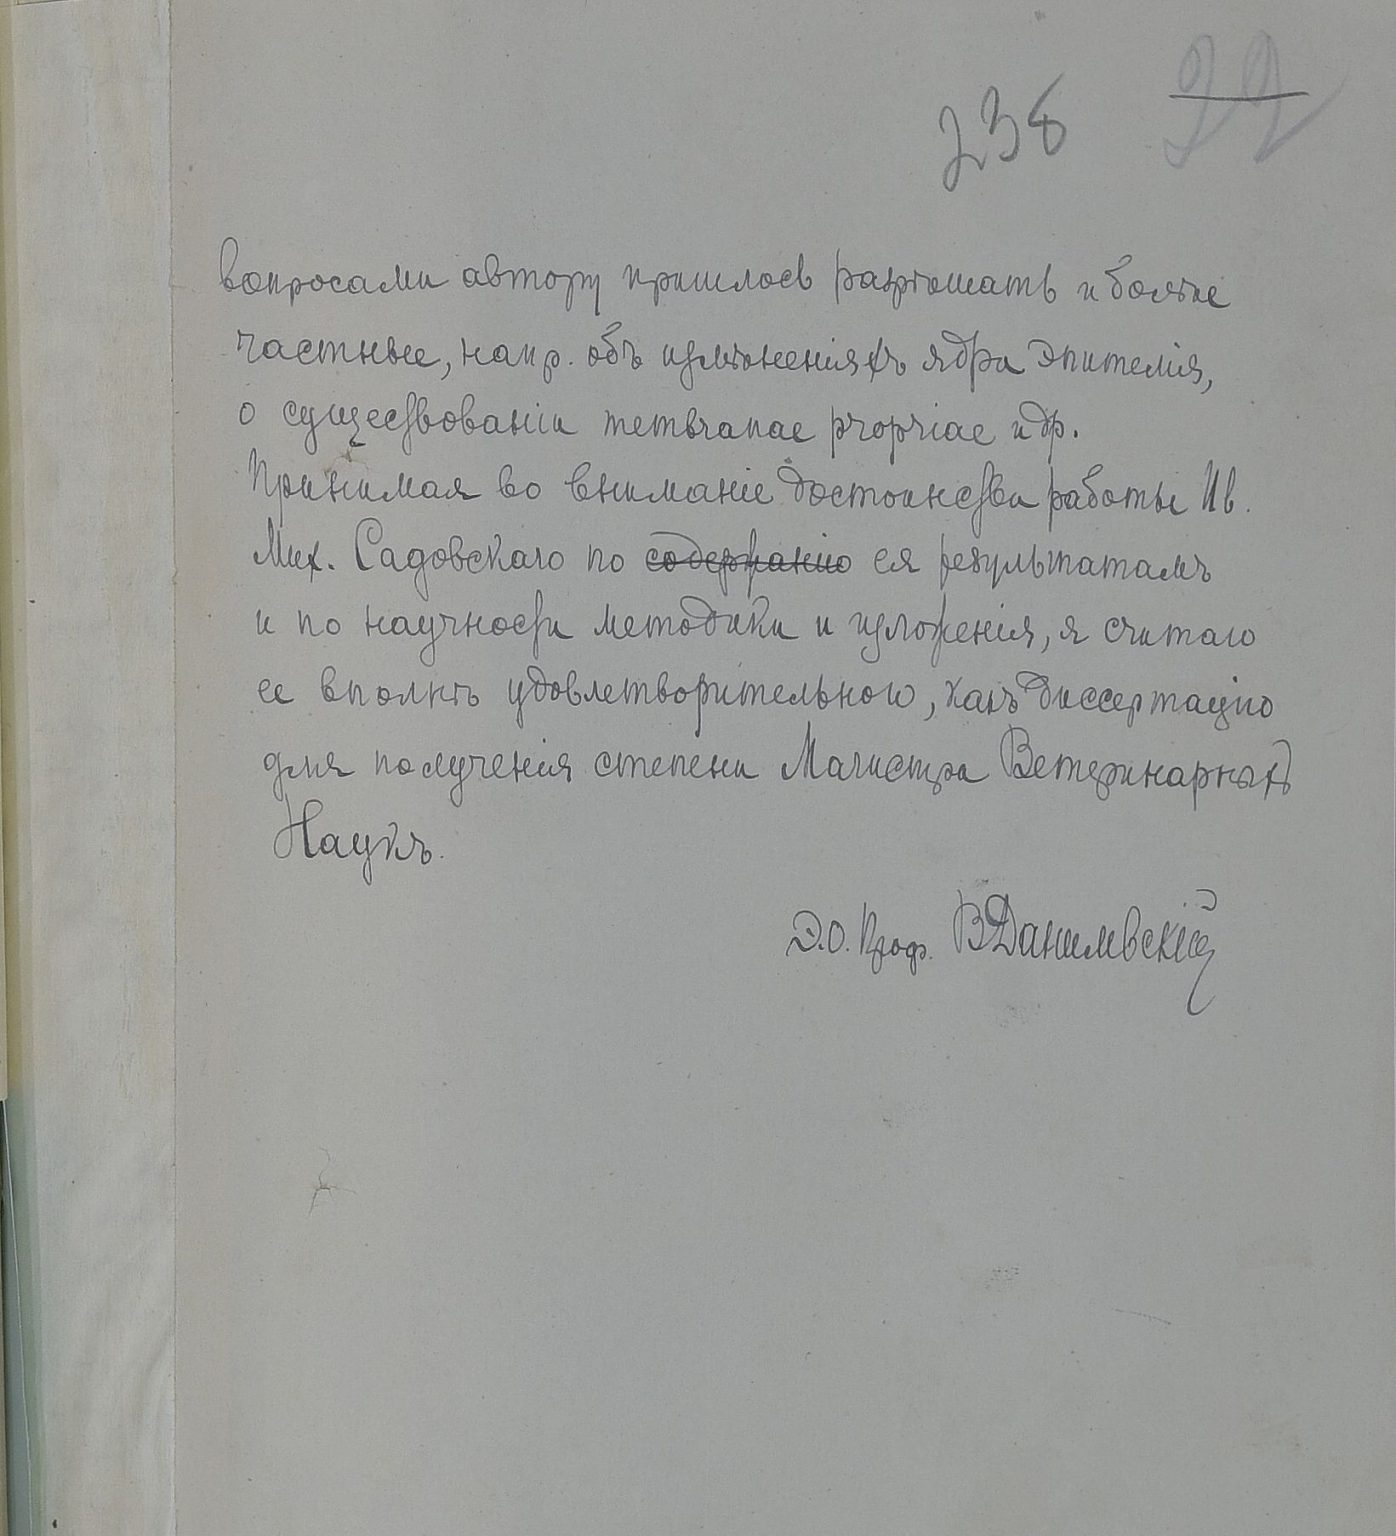 238 22
вопросами автору пришлось разрѣшать и болѣе
частные, напр. объ измѣненіяхъ ядра эпителія,
о существованіи membranae propriae и др.
Принимая во вниманіе достоинства работы Ив.
Мих. Садовскаго по содержанію ея результатамъ
и по научности методики и изложенія, я считаю
ее вполнѣ удовлетворительною, какъ диссертацію
для полученія степени Магистра Ветеринарныхъ
Наукъ.
Э.О. Проф. ВДанилевскій